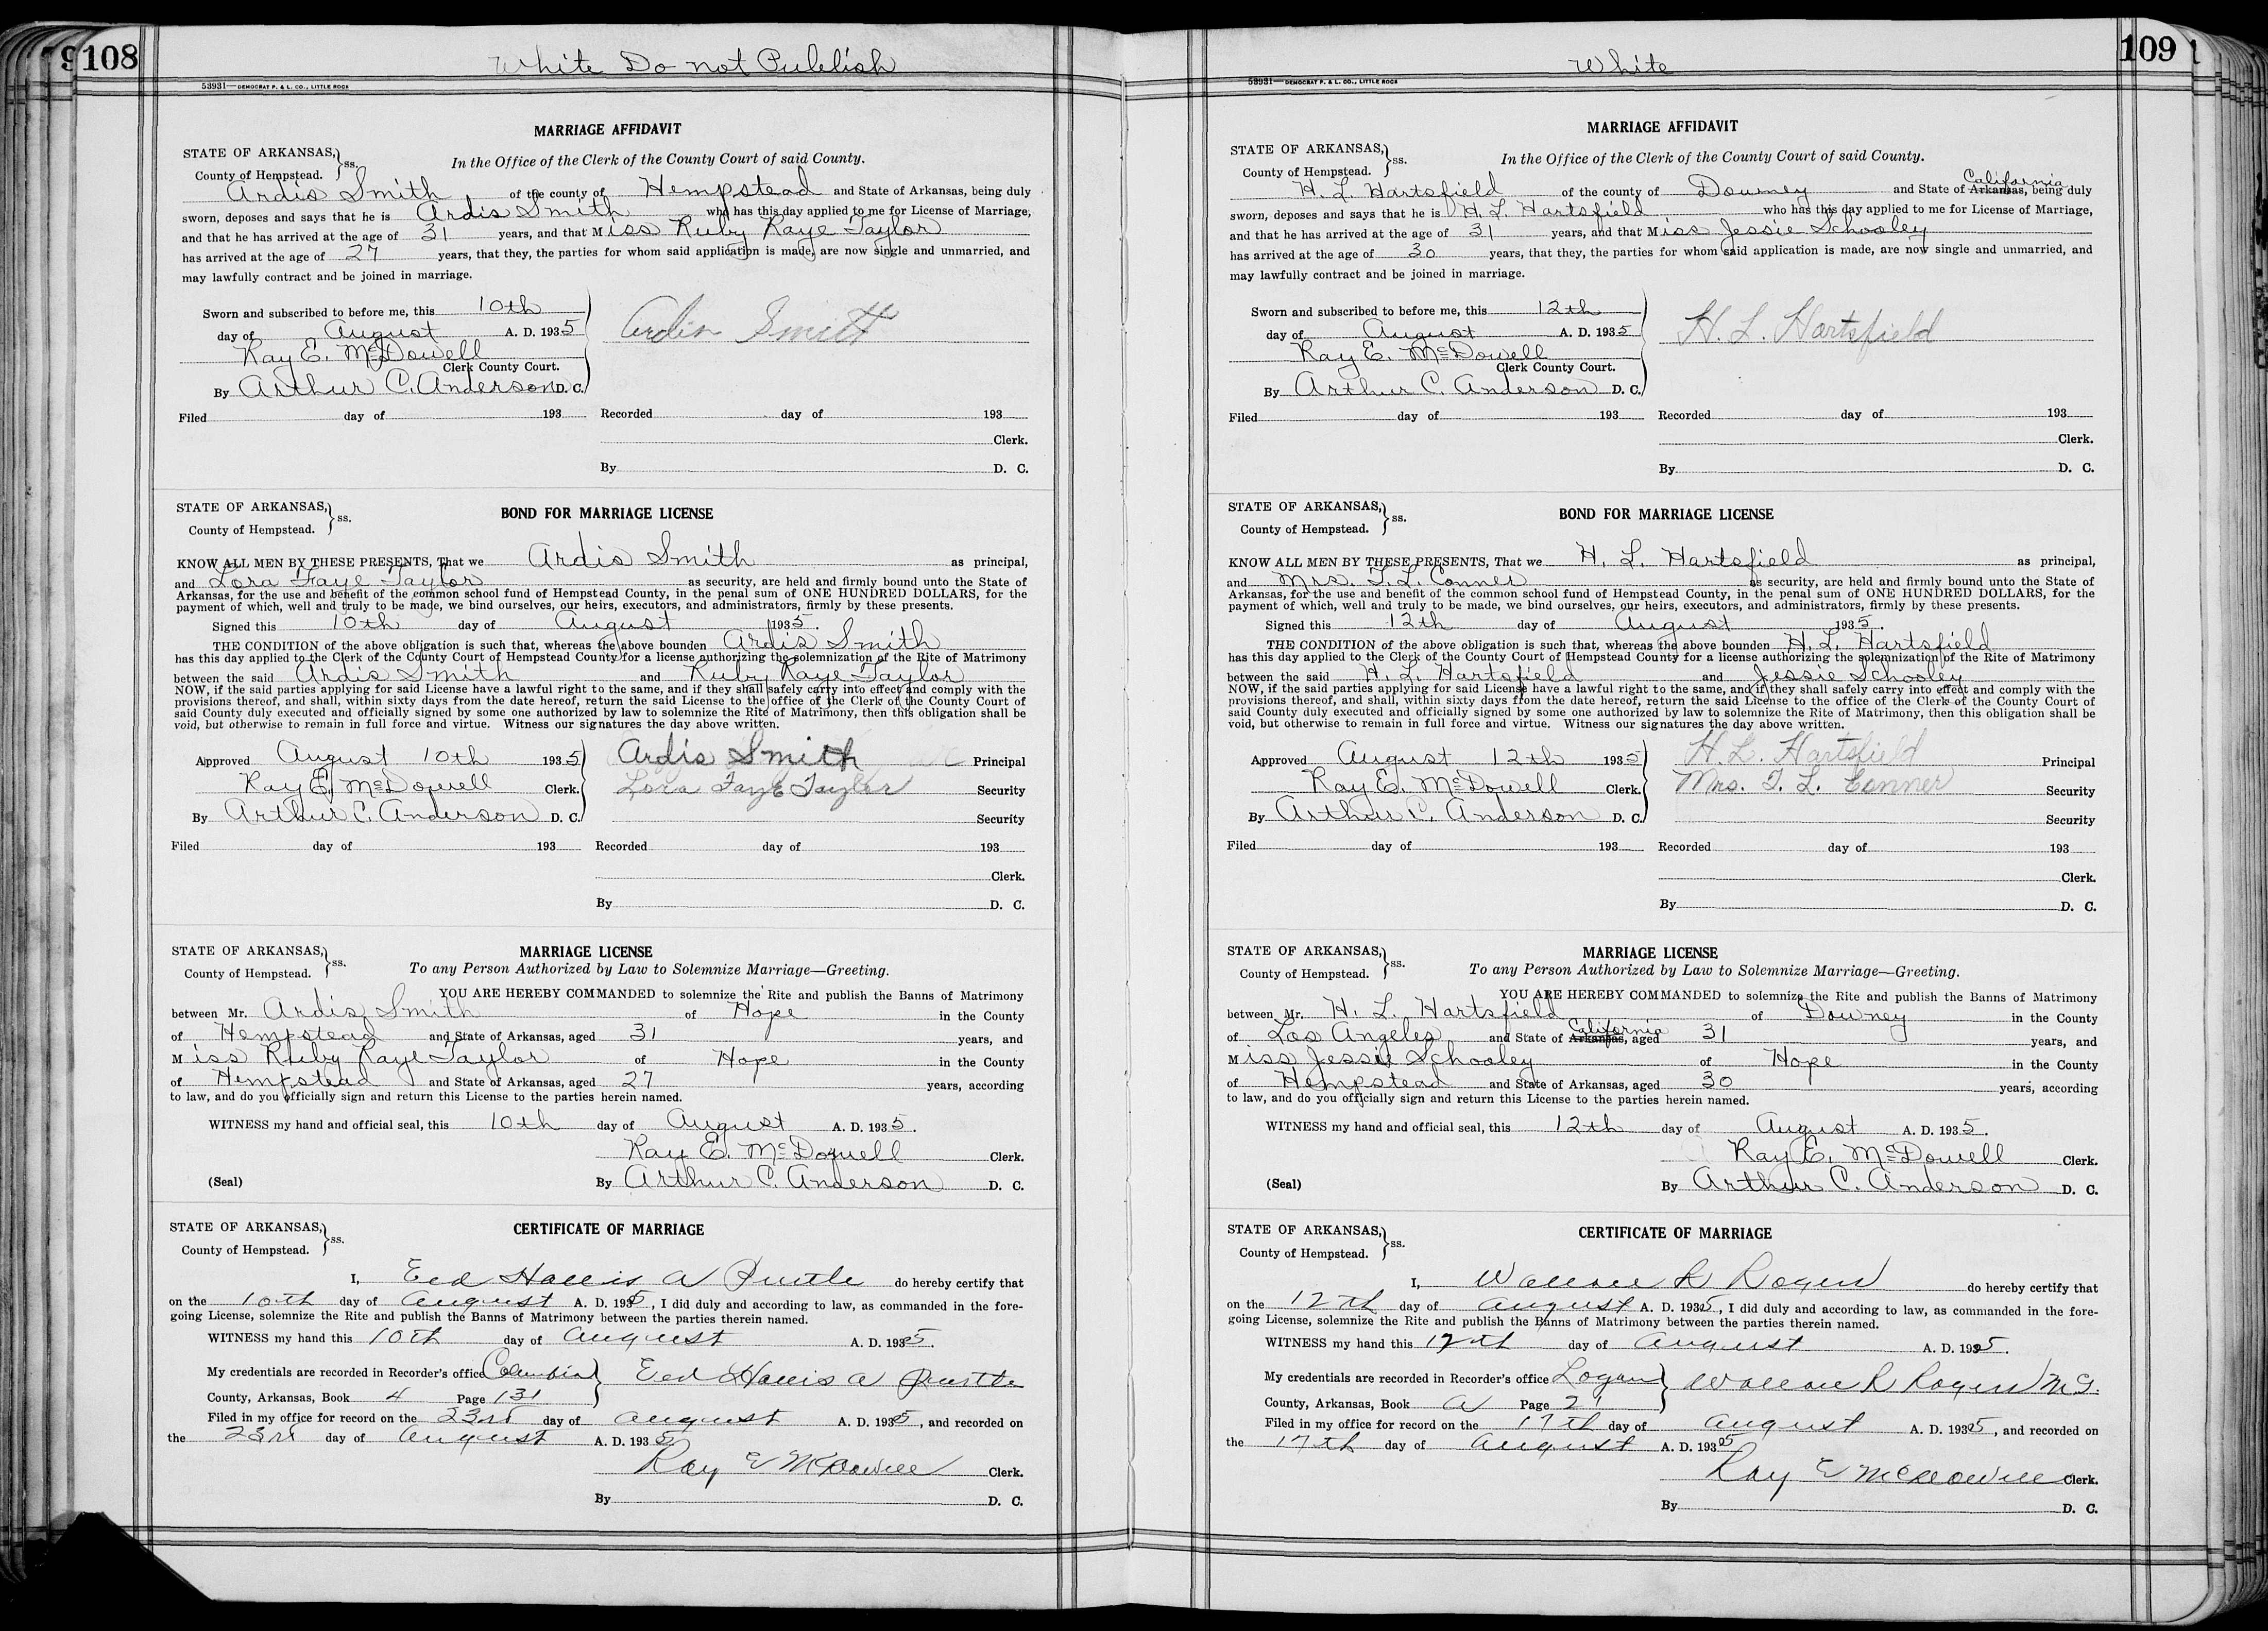 108
White Do not Publish
53931—DEMOCRAT P. & L. CO., LITTLE ROCK
MARRIAGE AFFIDAVIT
STATE OF ARKANSAS,
County of Hempstead. } ss.
In the Office of the Clerk of the County Court of said County.
Ardis Smith of the county of Hempstead and State of Arkansas, being duly
sworn, deposes and says that he is Ardis Smith who has this day applied to me for License of Marriage,
and that he has arrived at the age of 31 years, and that Miss Ruby Raye Taylor
has arrived at the age of 27 years, that they, the parties for whom said application is made, are now single and unmarried, and
may lawfully contract and be joined in marriage.
Sworn and subscribed to before me, this 10th
day of August A. D. 1935
Ardis Smith
Ray E. McDowell
Clerk County Court.
By Arthur C. Anderson D. C.
Filed day of 193 Recorded day of 193
Clerk.
By D. C.
STATE OF ARKANSAS,
County of Hempstead. } ss.
BOND FOR MARRIAGE LICENSE
KNOW ALL MEN BY THESE PRESENTS, That we Ardis Smith as principal,
and Lora Faye Taylor as security, are held and firmly bound unto the State of
Arkansas, for the use and benefit of the common school fund of Hempstead County, in the penal sum of ONE HUNDRED DOLLARS, for the
payment of which, well and truly to be made, we bind ourselves, our heirs, executors, and administrators, firmly by these presents.
Signed this 10th day of August 1935.
THE CONDITION of the above obligation is such that, whereas the above bounden Ardis Smith
has this day applied to the Clerk of the County Court of Hempstead County for a license authorizing the solemnization of the Rite of Matrimony
between the said Ardis Smith and Ruby Raye Taylor
NOW, if the said parties applying for said License have a lawful right to the same, and if they shall safely carry into effect and comply with the
provisions thereof, and shall, within sixty days from the date hereof, return the said License to the office of the Clerk of the County Court of
said County duly executed and officially signed by some one authorized by law to solemnize the Rite of Matrimony, then this obligation shall be
void, but otherwise to remain in full force and virtue. Witness our signatures the day above written.
Approved August 10th 1935 Ardis Smith Principal
Ray E. McDowell Clerk. Lora Faye Taylor Security
By Arthur C. Anderson D. C. Security
Filed day of 193 Recorded day of 193
Clerk.
By D. C.
STATE OF ARKANSAS,
County of Hempstead. } ss.
MARRIAGE LICENSE
To any Person Authorized by Law to Solemnize Marriage—Greeting.
YOU ARE HEREBY COMMANDED to solemnize the Rite and publish the Banns of Matrimony
between Mr. Ardis Smith of Hope in the County
of Hempstead and State of Arkansas, aged 31 years, and
Miss Ruby Raye Taylor of Hope in the County
of Hempstead and State of Arkansas, aged 27 years, according
to law, and do you officially sign and return this License to the parties herein named.
WITNESS my hand and official seal, this 10th day of August A. D. 1935.
Ray E. McDowell Clerk.
(Seal) By Arthur C. Anderson D. C.
STATE OF ARKANSAS,
County of Hempstead. } ss.
CERTIFICATE OF MARRIAGE
I, do hereby certify that
on the 10th day of August A. D. 1935, I did duly and according to law, as commanded in the fore-
going License, solemnize the Rite and publish the Banns of Matrimony between the parties therein named.
WITNESS my hand this 10th day of August A. D. 1935.
My credentials are recorded in Recorder's office Columbia
County, Arkansas, Book 4 Page 131
Filed in my office for record on the 23rd day of August A. D. 1935, and recorded on
the 23rd day of August A. D. 1935
Ray E McDowell Clerk.
By D. C.
109
White
53931—DEMOCRAT P. & L. CO., LITTLE ROCK
MARRIAGE AFFIDAVIT
STATE OF ARKANSAS,
County of Hempstead. } ss.
In the Office of the Clerk of the County Court of said County.
California
H. L Hartsfield of the county of Downey and State of Arkansas, being duly
sworn, deposes and says that he is H. L. Hartsfield who has this day applied to me for License of Marriage,
and that he has arrived at the age of 31 years, and that Miss Jessie Schooley
has arrived at the age of 30 years, that they, the parties for whom said application is made, are now single and unmarried, and
may lawfully contract and be joined in marriage.
Sworn and subscribed to before me, this 12th
day of August A. D. 1935
H. L. Hartsfield
Ray E. McDowell
Clerk County Court.
By Arthur C. Anderson D. C.
Filed day of 193 Recorded day of 193
Clerk.
By D. C.
STATE OF ARKANSAS,
County of Hempstead. } ss.
BOND FOR MARRIAGE LICENSE
KNOW ALL MEN BY THESE PRESENTS, That we H. L. Hartsfield as principal,
and Mrs. T. L. Conner as security, are held and firmly bound unto the State of
Arkansas, for the use and benefit of the common school fund of Hempstead County, in the penal sum of ONE HUNDRED DOLLARS, for the
payment of which, well and truly to be made, we bind ourselves, our heirs, executors, and administrators, firmly by these presents.
Signed this 12th day of August 1935.
THE CONDITION of the above obligation is such that, whereas the above bounden H. L. Hartsfield
has this day applied to the Clerk of the County Court of Hempstead County for a license authorizing the solemnization of the Rite of Matrimony
between the said H. L. Hartsfield and Jessie Schooley
NOW, if the said parties applying for said License have a lawful right to the same, and if they shall safely carry into effect and comply with the
provisions thereof, and shall, within sixty days from the date hereof, return the said License to the office of the Clerk of the County Court of
said County duly executed and officially signed by some one authorized by law to solemnize the Rite of Matrimony, then this obligation shall be
void, but otherwise to remain in full force and virtue. Witness our signatures the day above written.
Approved August 12th 1935 H. L. Hartsfield Principal
Ray E. McDowell Clerk. Mrs. T. L. Conner Security
By Arthur C. Anderson D. C. Security
Filed day of 193 Recorded day of 193
Clerk.
By D. C.
STATE OF ARKANSAS,
County of Hempstead. } ss.
MARRIAGE LICENSE
To any Person Authorized by Law to Solemnize Marriage—Greeting.
YOU ARE HEREBY COMMANDED to solemnize the Rite and publish the Banns of Matrimony
between Mr. H. L. Hartsfield of Downey in the County
California
of Los Angeles and State of Arkansas, aged 31 years, and
Miss Jessie Schooley of Hope in the County
of Hempstead and State of Arkansas, aged 30 years, according
to law, and do you officially sign and return this License to the parties herein named.
WITNESS my hand and official seal, this 12th day of August A. D. 1935.
Ray E. McDowell Clerk.
(Seal) By Arthur C. Anderson D. C.
STATE OF ARKANSAS,
County of Hempstead. } ss.
CERTIFICATE OF MARRIAGE
I, Wallace R Rogers do hereby certify that
on the 12th day of August A. D. 1935, I did duly and according to law, as commanded in the fore-
going License, solemnize the Rite and publish the Banns of Matrimony between the parties therein named.
WITNESS my hand this 12th day of August A. D. 1935.
My credentials are recorded in Recorder's office Logan Wallace R Rogers M.G.
County, Arkansas, Book A Page 21
Filed in my office for record on the 17th day of August A. D. 1935, and recorded on
the 17th day of August A. D. 1935
Ray E McDowell Clerk.
By D. C.